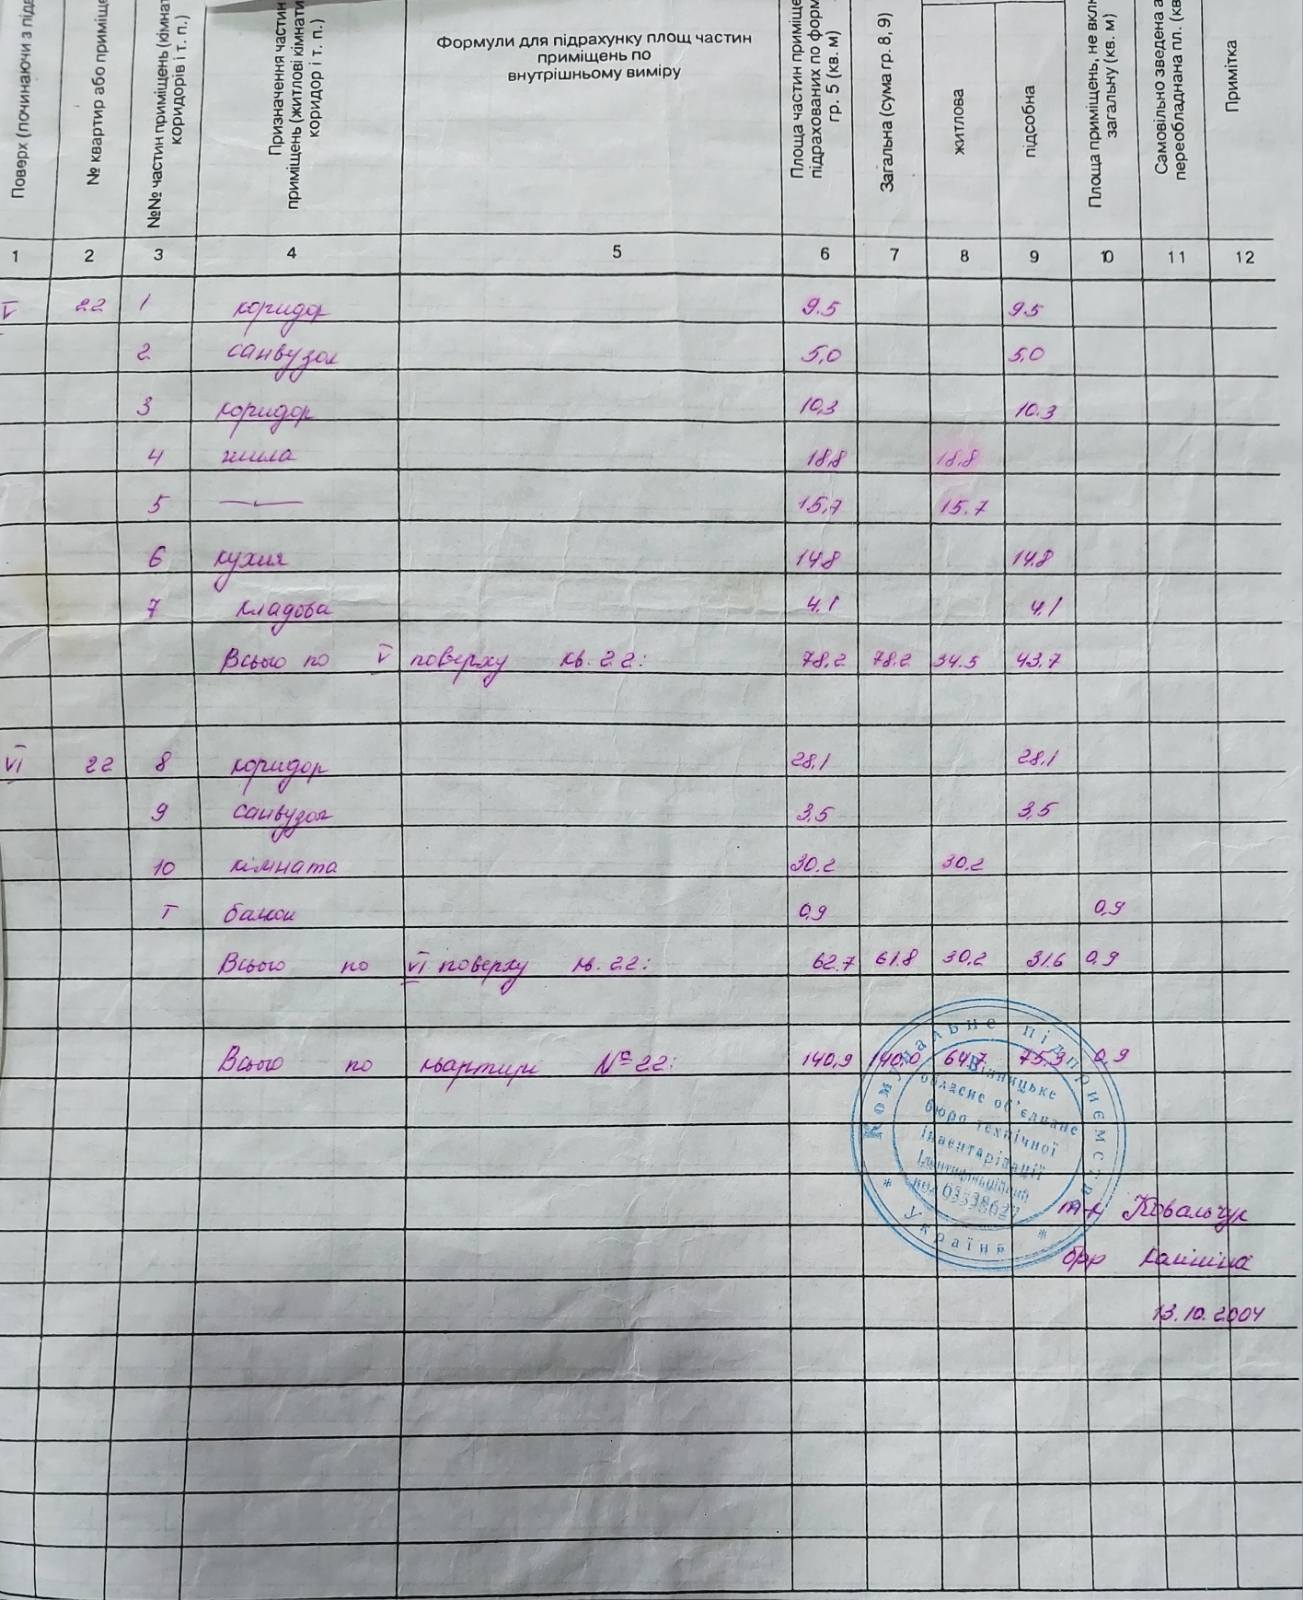 Поверх (починаючи з підв
№ квартир або приміще
№№ частин приміщень (кімнат
коридорів і т. п.)
Призначення частин
приміщень (житлові кімнати
коридор і т. п.)
Формули для підрахунку площ частин
приміщень по
внутрішньому виміру
Площа частин приміще
підрахованих по форм
гр. 5 (кв. м)
Загальна (сума гр. 8, 9)
житлова
підсобна
Площа приміщень, не вкл
загальну (кв. м)
Самовільно зведена а
переобладнана пл. (кв
Примітка
1 2 3 4 5 6 7 8 9 10 11 12
V 22 1 коридор 9.5 9.5
2 санвузол 5,0 5,0
3 коридор 10,3 10.3
4 жила 18,8 18.8
5 —〃— 15,7 15.7
6 кухня 14,8 14,8
7 кладова 4,1 4,1
Всього по V поверху кв. 22: 78,2 78.2 34.5 43.7
VI 22 8 коридор 28,1 28,1
9 санвузол 3,5 3,5
10 кімната 30,2 30,2
I балкон 0,9 0,9
Всього по VI поверху кв. 22: 62.7 61.8 30,2 31.6 0,9
Всього по квартирі № 22: 140,9 140,0 64,7 75.3 0,9
Комунальне підприємство
* Україна *
Вінницьке
обласне об'єднане
бюро технічної
інвентарізації
Ідентифікаційний
код 03338627
т-к Ковальчук
бр Калініна
13.10.2004